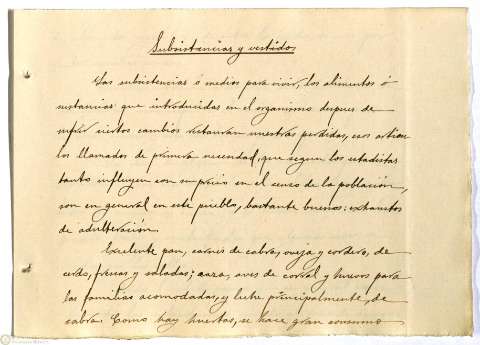 Subsistencias y vestidos
Las subsistencias ó medios para vivir, los alimentos ó
sustancias que introducidas en el organismo despues de
sufrir ciertos cambios restauran nuestras perdidas, esos articu
los llamados de primera necesidad, que segun los estadistas
tanto influyen con su precio en el censo de la población,
son en general en este pueblo, bastante buenos: exhaustos
de adulteración.
Excelente pan, carnes de cabra, oveja y cordero, de
cerdo, frescas y saladas; caza, aves de corral y huevos para
las familias acomodadas, y leche, principalmente, de
cabra. Como hay huertas, se hace gran consumo